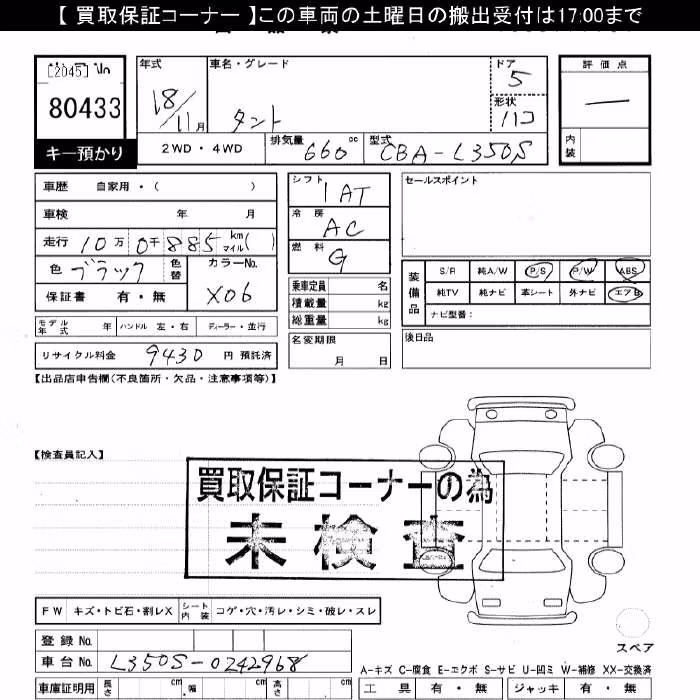 【 買取保証コーナー 】この車両の土曜日の搬出受付は17:00まで
[2045]
80433
キー預かり
年式
18/11月
車名・グレード
タント
ドア
5
形状
ハコ
評価点
—
内装
2WD・4WD
排気量 660 cc
型式 CBA-L350S
車歴 自家用・( )
車検 年 月
走行 10万0千885km マイル( )
色 ブラック 色替
カラーNo.
X06
保証書 有・無
シフト
1AT
冷房
AC
燃料
G
乗車定員 名
積載量 kg
総重量 kg
セールスポイント
装備品
S/R 純A/W P/S P/W ABS
純TV 純ナビ 革シート 外ナビ エアB
ナビ型番:
モデル年式 年 ハンドル 左・右 ディーラー・並行
名変期限
月 日
後日品
リサイクル料金 9430 円 預託済
【出品店申告欄(不良箇所・欠品・注意事項等)】
【検査員記入】
買取保証コーナーの為
未検査
FW キズ・トビ石・割レX シート内装 コゲ・穴・汚レ・シミ・破レ・スレ
登録No.
車台No. L350S-0242968
スペア
A-キズ C-腐食 E-エクボ S-サビ U-凹ミ W-補修 XX-交換済
車庫証明用 長さ cm 幅 cm 高さ cm
工具 有・無 ジャッキ 有・無